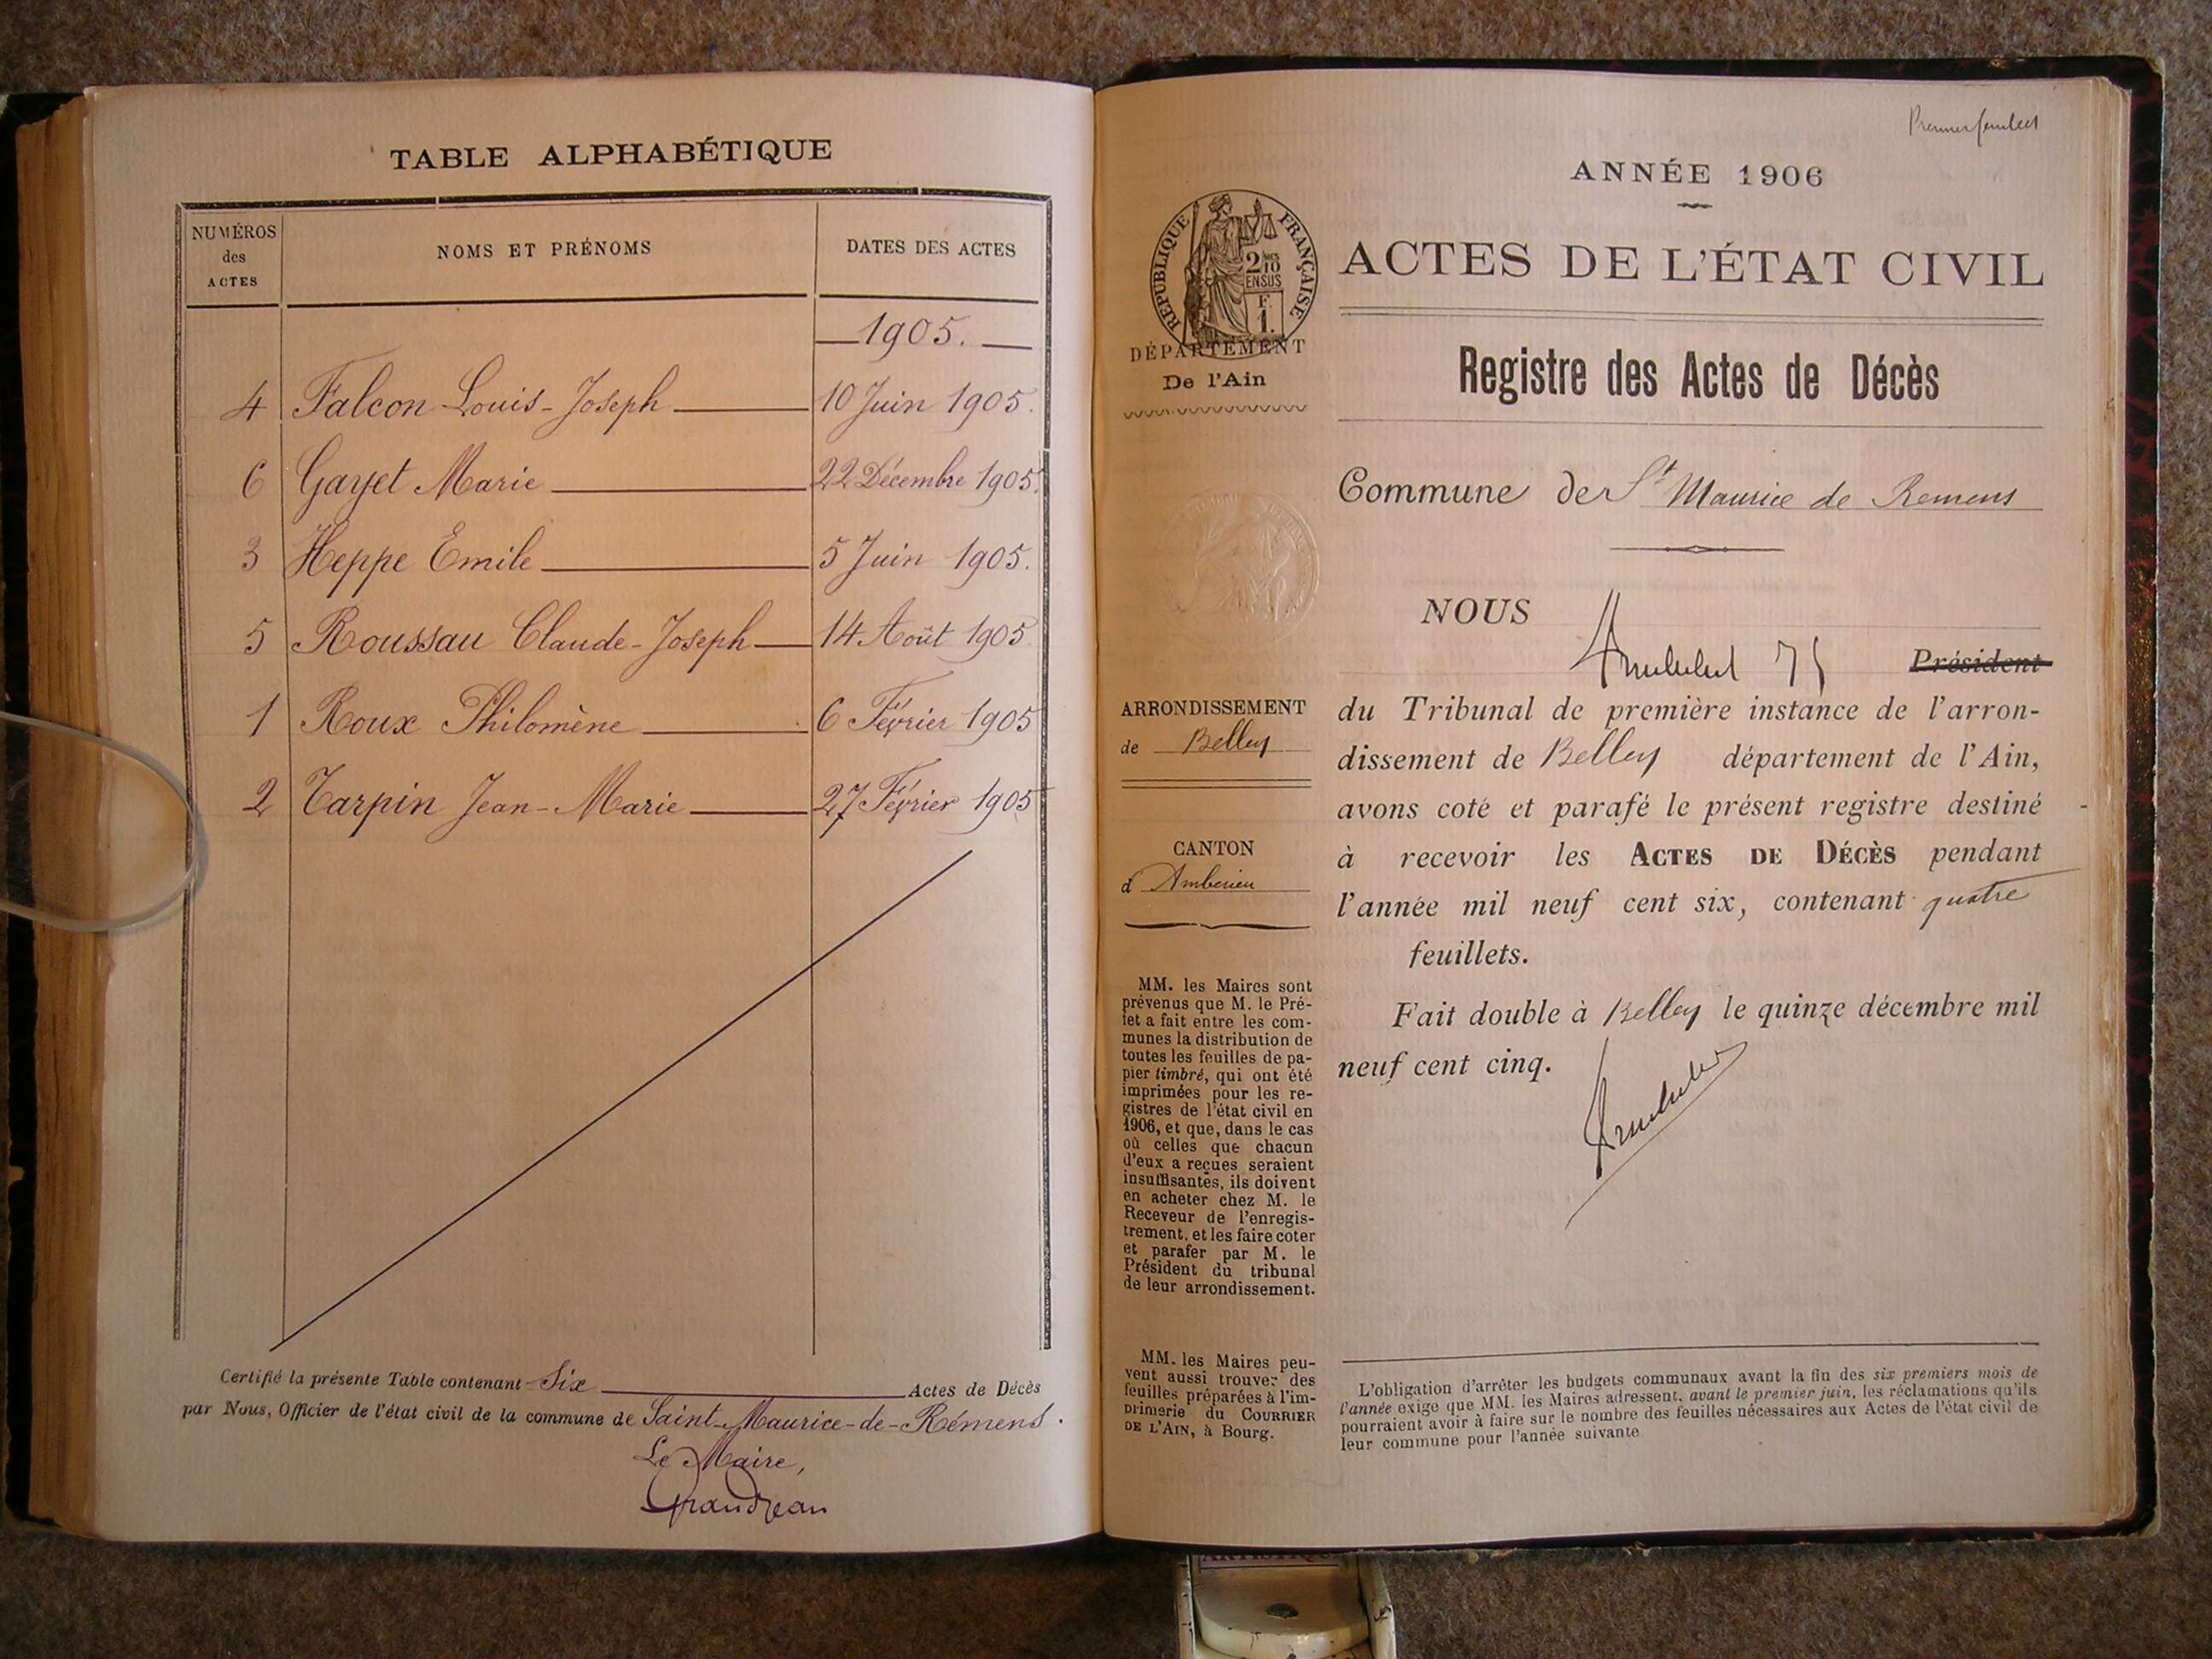 TABLE ALPHABÉTIQUE
NUMÉROS
des
ACTES
NOMS ET PRÉNOMS
DATES DES ACTES
1905.
4 Falcon Louis-Joseph 10 Juin 1905.
6 Gayet Marie 22 Décembre 1905.
3 Heppe Emile 5 Juin 1905.
5 Roussau Claude-Joseph 14 Août 1905
1 Roux Philomène 6 Février 1905
2 Tarpin Jean-Marie 27 Février 1905
Certifié la présente Table contenant Six Actes de Décès
par Nous, Officier de l'état civil de la commune de Saint-Maurice-de-Rémens.
Le Maire,
Grandjean
Premier feuillet
ANNÉE 1906
RÉPUBLIQUE FRANÇAISE
2/10
EN SUS
F.
1.
DÉPARTEMENT
De l'Ain
ACTES DE L'ÉTAT CIVIL
Registre des Actes de Décès
Commune de St Maurice de Remens
NOUS
Président
du Tribunal de première instance de l'arron-
dissement de Belley département de l'Ain,
avons coté et parafé le présent registre destiné
à recevoir les ACTES DE DÉCÈS pendant
l'année mil neuf cent six, contenant quatre
feuillets.
Fait double à Belley le quinze décembre mil
neuf cent cinq.
ARRONDISSEMENT
de Belley
CANTON
d'Ambérieu
MM. les Maires sont
prévenus que M. le Pré-
fet a fait entre les com-
munes la distribution de
toutes les feuilles de pa-
pier timbré, qui ont été
imprimées pour les re-
gistres de l'état civil en
1906, et que, dans le cas
où celles que chacun
d'eux a reçues seraient
insuffisantes, ils doivent
en acheter chez M. le
Receveur de l'enregis-
trement, et les faire coter
et parafer par M. le
Président du tribunal
de leur arrondissement.
MM. les Maires peu-
vent aussi trouver des
feuilles préparées à l'im-
primerie du COURRIER
DE L'AIN, à Bourg.
L'obligation d'arrêter les budgets communaux avant la fin des six premiers mois de
l'année exige que MM. les Maires adressent, avant le premier juin, les réclamations qu'ils
pourraient avoir à faire sur le nombre des feuilles nécessaires aux Actes de l'état civil de
leur commune pour l'année suivante